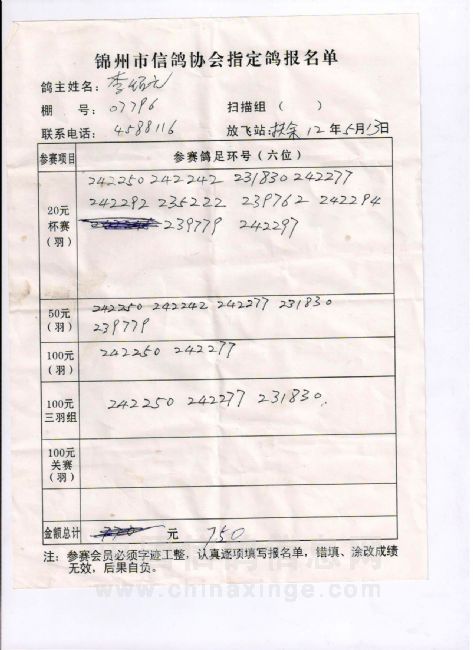 锦州市信鸽协会指定鸽报名单
鸽主姓名：李
棚 号：07796 扫描组（ ）
联系电话：4588116 放飞站：扶余 12年5月13日
参赛项目 参赛鸽足环号（六位）
20元杯赛（羽） 242250 242242 231830 242277
242292 235222 239762 242294
239779 242297
50元（羽） 242250 242242 242277 231830
239779
100元（羽） 242250 242277
100元三羽组 242250 242277 231830
100元关赛（羽）
金额总计 770 元 750
注：参赛会员必须字迹工整，认真逐项填写报名单，错填、涂改成绩
无效，后果自负。
www.chinaxinge.com